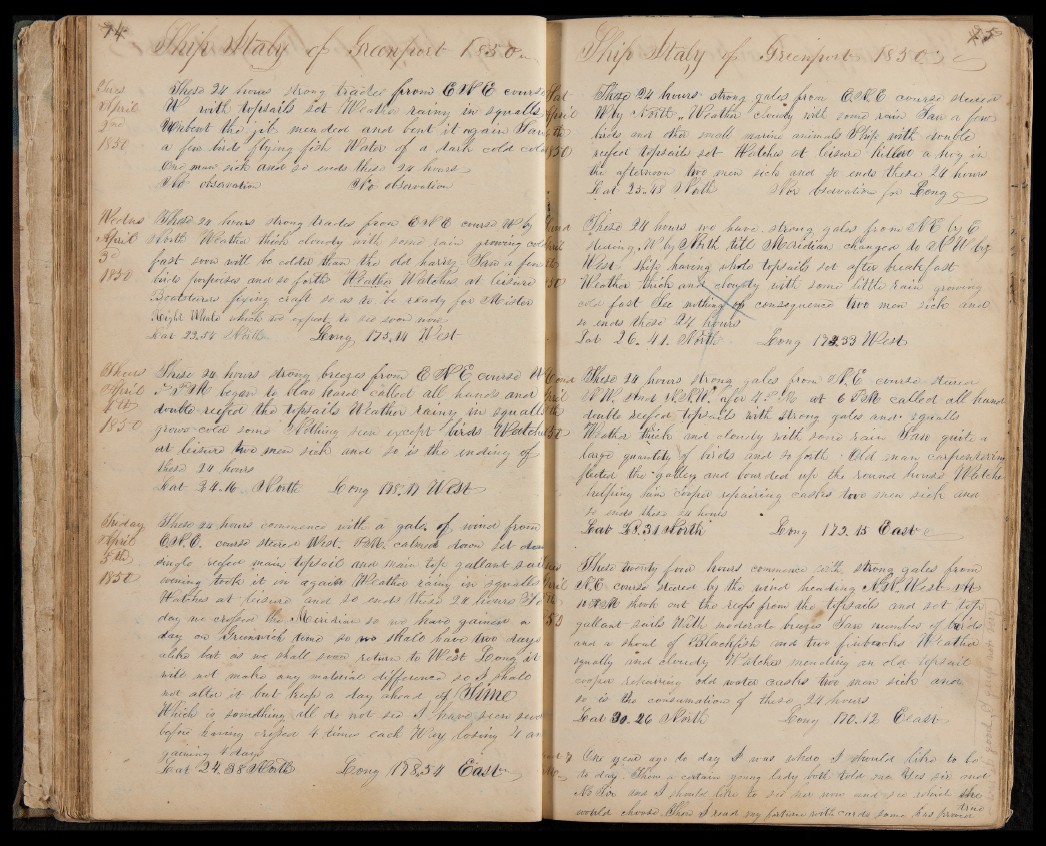 74
Ship Italy of Greenport 1850
Tues
April
2nd
1850
These 24 hours strong trades from ENE course
W with topsails set Weather rainy in squalls
Unbent the jib mended and bent it again Saw
a few birds flying fish Water of a dark cold color
One man sick and so ends these 24 hours
No observation No observation
Wednes
April
3d
1850
These 24 hours strong trades from ENE course W by
North Weather thick cloudy with some rain growing cold
fast soon will be colder than the old harry Saw a few
birds porpoises and so forth Weather Watches at leisure
Boatsteerers fixing craft so as to be ready for Mister
Right Whale which we expect to see soon now
Lat 23.54 North Long 175.14 West
Thurs
April
4th
1850
These 24 hours strong breezes from ENE course W
PM began to blow hard called all hands and
double reefed the topsails Weather rainy in squalls
grows cold some Nothing seen except birds Watches
at leisure two men sick and so is the ending of
these 24 hours
Lat 24.16 North Long 178.17 West
Friday
April
5th
1850
These 24 hours commence with a gale of wind from
ENE. course steered West. PM. calmed down let
single reefed main topsail and main top gallant sail
evening took it in again Weather rainy in squalls
Watches at leisure and so ends these 24 hours To
day we crossed the Meridian so we have gained a
day on Greenwich time so we shall have two days
alike but as we shall soon return to West Long it
will not make any material difference so I shall
not alter it but keep a day ahead of Time
Which is something all do not see I have seen
before having crossed 4 times each Way losing 4 and
gaining 4 days
Lat 24.38 North Long 178.54 East
75
Ship Italy of Greenport 1850
These 24 hours strong gales from ENE course steered
W by North Weather cloudy with some rain Saw a few
birds and other small marine animals Ship with double
reefed topsails set Watches at leisure killed a hog in
the afternoon two men sick and so ends these 24 hours
Lat 25-48 North Nor observation for Long
These 24 hours we have strong gales from NE by E
steering W by North till Meridian changed to NW by
West ship having whole topsails set after breakfast
Weather thick and cloudy with some little rain growing
cold fast See nothing of consequence two men sick and
so ends these 24 hours
Lat 26.41. North Long 174.33 West
These 24 hours strong gales from N.E. course steered
NW. and NNW. after 4 PM at 6 PM called all hands
double reefed topsails with strong gales and squalls
Weather thick and cloudy with some rain Saw quite a
large quantity of birds and so forth Old man carpenter
the galley and boarded up the round house Watches
helping him cooper repairing casks two men sick and
so ends these 24 hours
Lat 28.31 North Long 173.15 East
These twenty four hours commence with strong gales from
N.E. course steered by the wind heading NNWest At
10 AM shook out the reefs from the topsails and set top
gallant sails With moderate breezes Saw number of birds
and a shoal of Blackfish and two finbacks Weather
squally and cloudy Watches mending an old topsail
cooper repairing old water casks two men sick and
so is the consumation of these 24 hours
Lat 30.26 North Long 170.12 East
One year ago to day I was where I should like to be
to day. Then a certain young lady both told me Yes sir and
No Sir and I should like to see her now and see which she
would choose. Then I read my fortune with cards some has proved
true